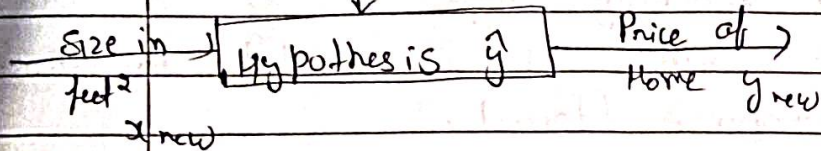 Size in
feet²
x new
Hypothesis ŷ
Price of
Home y new